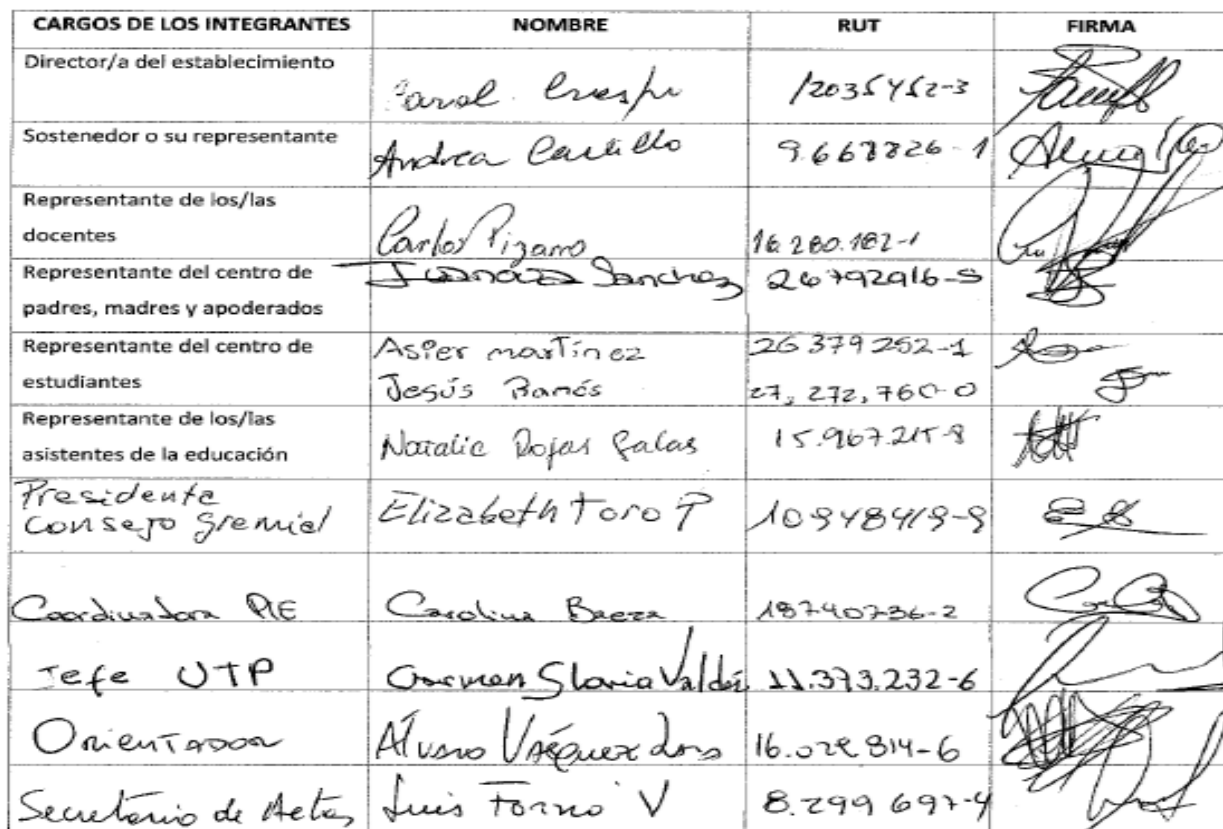 CARGOS DE LOS INTEGRANTES NOMBRE RUT FIRMA
Director/a del establecimiento
Carol Crespo 12035452-3
Sostenedor o su representante
Andrea Castillo 9.667826-1
Representante de los/las
docentes Carlos Pizarro 16.280.182-1
Representante del centro de Sanchez 26792916-5
padres, madres y apoderados
Representante del centro de Asier martínez 26379252-1
estudiantes Jesús 27,272,760-0
Representante de los/las
asistentes de la educación Natalie Rojas Salas 15.967.215-8
Presidenta
consejo gremial Elizabeth Toro P 10948419-9
Coordinadora PIE Carolina Baeza 18740736-2
Jefe UTP Carmen Gloria Valdés 11.373.232-6
Orientador Álvaro Vásquez 16.028814-6
Secretario de Actas Luis V 8.299697-4